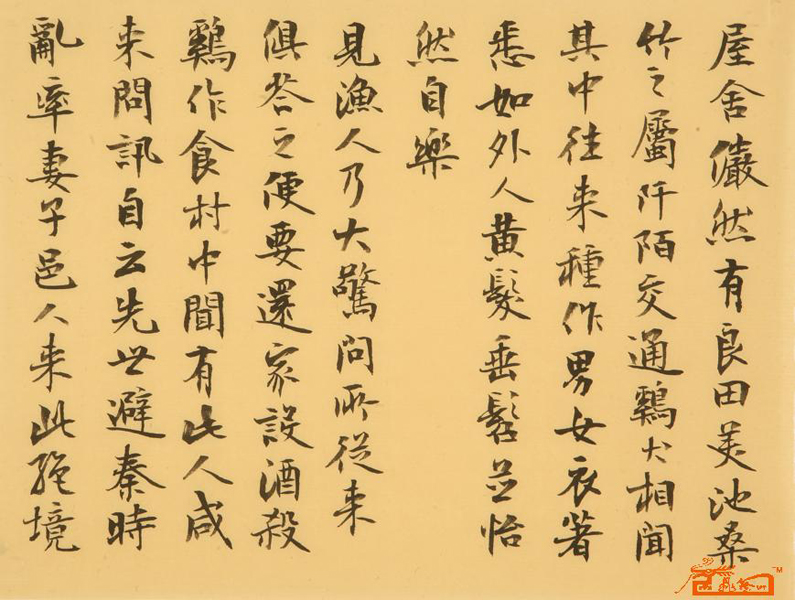 屋舍儼然有良田美池桑
竹之屬阡陌交通鷄犬相聞
其中往来種作男女衣著
悉如外人黄髮垂髫並怡
然自樂
見漁人乃大驚問所從来
俱答之便要還家設酒殺
鷄作食村中聞有此人咸
来問訊自云先世避秦時
亂率妻子邑人来此絶境